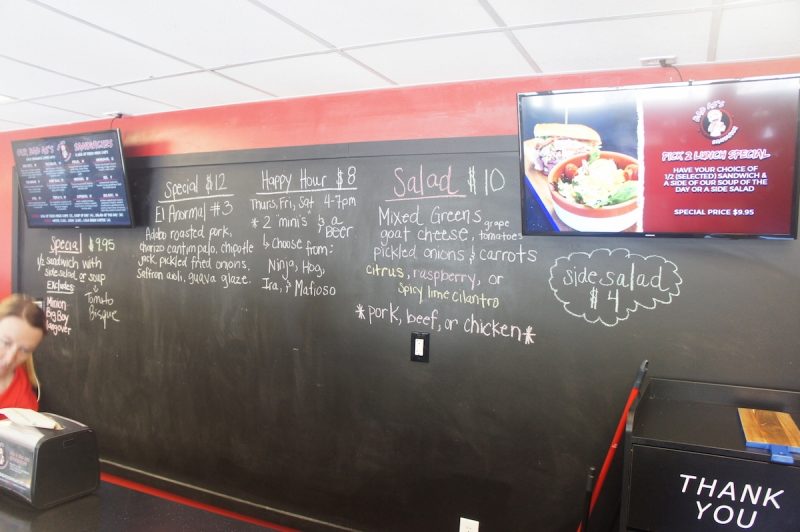 OUR BAD AS'S SANDWICHES
Special $9.95
½ sandwich with
side salad or soup
Excludes:
Minion
Big Boy
hangover
* Tomato
Bisque
Special $12
El Anormal #3
Adobo roasted pork,
chorizo cantimpalo, chipotle
jack, pickled fried onions,
Saffron aioli, guava glaze.
Happy Hour $8
Thurs, Fri, Sat 4-7pm
* 2 "mini's" & a
Beer
↳ Choose from:
Ninja, Hog,
Ira, & Mafioso
Salad $10
Mixed Greens, grape
goat cheese, tomatoes
pickled onions & carrots
citrus, raspberry, or
spicy lime cilantro
*pork, beef, or chicken*
side salad
$4
BAD AS'S
SANDWICH
PICK 2 LUNCH SPECIAL
HAVE YOUR CHOICE OF
1/2 (SELECTED) SANDWICH &
A SIDE OF OUR SOUP OF THE
DAY OR A SIDE SALAD
SPECIAL PRICE $9.95
THANK
YOU